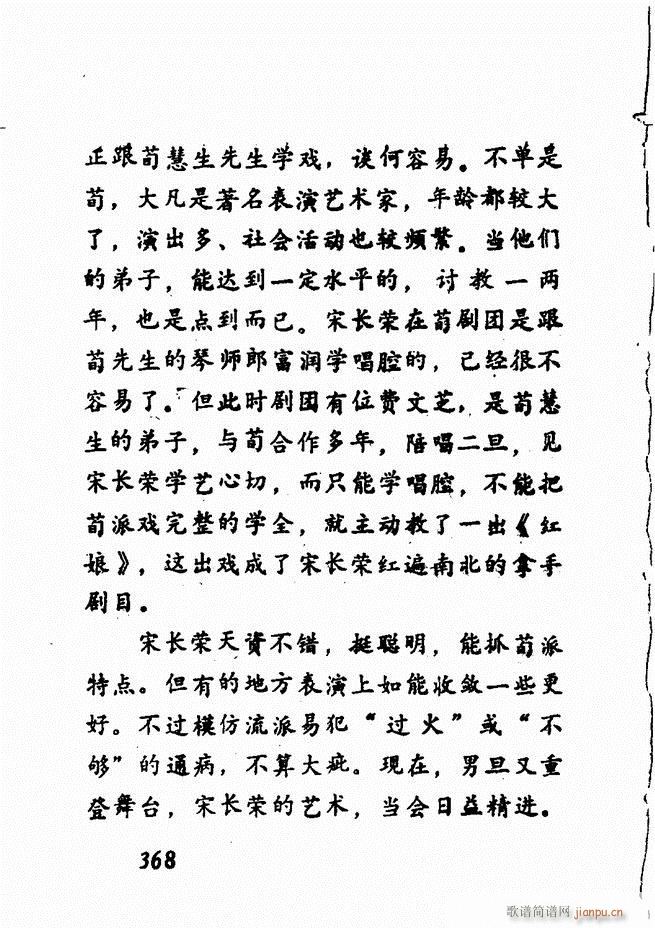 正跟荀慧生先生学戏，谈何容易。不单是
荀，大凡是著名表演艺术家，年龄都较大
了，演出多、社会活动也较频繁。当他们
的弟子，能达到一定水平的，讨教一两
年，也是点到而已。宋长荣在荀剧团是跟
荀先生的琴师郎富润学唱腔的，已经很不
容易了。但此时剧团有位费文芝，是荀慧
生的弟子，与荀合作多年，陪唱二旦，见
宋长荣学艺心切，而只能学唱腔，不能把
荀派戏完整的学全，就主动教了一出《红
娘》，这出戏成了宋长荣红遍南北的拿手
剧目。
宋长荣天资不错，挺聪明，能抓荀派
特点。但有的地方表演上如能收敛一些更
好。不过模仿流派易犯“过火”或“不
够”的通病，不算大疵。现在，男旦又重
登舞台，宋长荣的艺术，当会日益精进。
368
歌谱简谱网 jianpu.cn